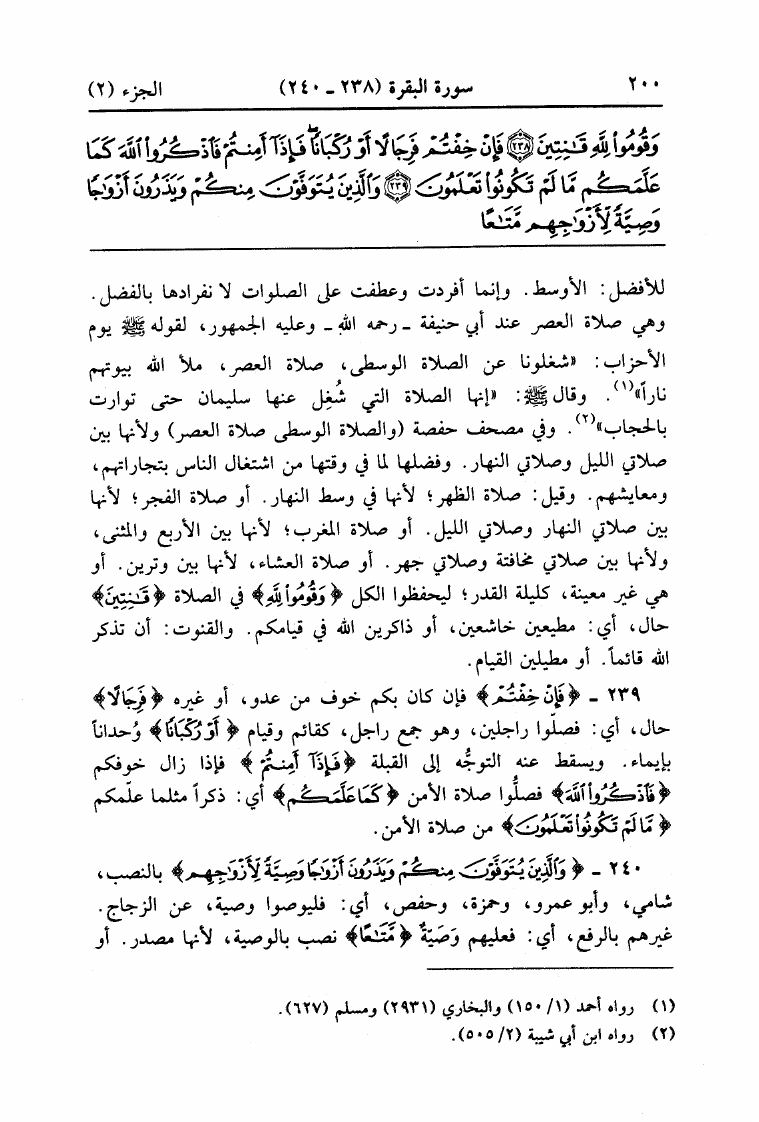 ٢٠٠ سورة البقرة (٢٣٨ ـ ٢٤٠) الجزء (٢)
وَقُومُوا۟ لِلَّهِ قَـٰنِتِينَ ﴿٢٣٨﴾ فَإِنْ خِفْتُمْ فَرِجَالًا أَوْ رُكْبَانًا ۖ فَإِذَآ أَمِنتُمْ فَٱذْكُرُوا۟ ٱللَّهَ كَمَا
عَلَّمَكُم مَّا لَمْ تَكُونُوا۟ تَعْلَمُونَ ﴿٢٣٩﴾ وَٱلَّذِينَ يُتَوَفَّوْنَ مِنكُمْ وَيَذَرُونَ أَزْوَٰجًا
وَصِيَّةً لِّأَزْوَٰجِهِم مَّتَـٰعًا
للأفضل: الأوسط. وإنما أفردت وعطفت على الصلوات لا نفرادها بالفضل.
وهي صلاة العصر عند أبي حنيفة ـ رحمه الله ـ وعليه الجمهور، لقوله ﷺ يوم
الأحزاب: «شغلونا عن الصلاة الوسطى، صلاة العصر، ملأ الله بيوتهم
ناراً»(١). وقال ﷺ: «إنها الصلاة التي شُغِل عنها سليمان حتى توارت
بالحجاب»(٢). وفي مصحف حفصة (والصلاة الوسطى صلاة العصر) ولأنها بين
صلاتي الليل وصلاتي النهار. وفضلها لما في وقتها من اشتغال الناس بتجاراتهم،
ومعايشهم. وقيل: صلاة الظهر؛ لأنها في وسط النهار. أو صلاة الفجر؛ لأنها
بين صلاتي النهار وصلاتي الليل. أو صلاة المغرب؛ لأنها بين الأربع والمثنى،
ولأنها بين صلاتي مخافتة وصلاتي جهر. أو صلاة العشاء، لأنها بين وترين. أو
هي غير معينة، كليلة القدر؛ ليحفظوا الكل ﴿وَقُومُوا۟ لِلَّهِ﴾ في الصلاة ﴿قَـٰنِتِينَ﴾
حال، أي: مطيعين خاشعين، أو ذاكرين الله في قيامكم. والقنوت: أن تذكر
الله قائماً. أو مطيلين القيام.
٢٣٩ ـ ﴿فَإِنْ خِفْتُمْ﴾ فإن كان بكم خوف من عدو، أو غيره ﴿فَرِجَالًا﴾
حال، أي: فصلّوا راجلين، وهو جمع راجل، كقائم وقيام ﴿أَوْ رُكْبَانًا﴾ وُحداناً
بإيماء. ويسقط عنه التوجُّه إلى القبلة ﴿فَإِذَآ أَمِنتُمْ﴾ فإذا زال خوفكم
﴿فَٱذْكُرُوا۟ ٱللَّهَ﴾ فصلُّوا صلاة الأمن ﴿كَمَا عَلَّمَكُم﴾ أي: ذكراً مثلما علّمكم
﴿مَّا لَمْ تَكُونُوا۟ تَعْلَمُونَ﴾ من صلاة الأمن.
٢٤٠ ـ ﴿وَٱلَّذِينَ يُتَوَفَّوْنَ مِنكُمْ وَيَذَرُونَ أَزْوَٰجًا وَصِيَّةً لِّأَزْوَٰجِهِم﴾ بالنصب،
شامي، وأبو عمرو، وحمزة، وحفص، أي: فليوصوا وصية، عن الزجاج.
غيرهم بالرفع، أي: فعليهم وَصَيّةٌ ﴿مَّتَـٰعًا﴾ نصب بالوصية، لأنها مصدر. أو
(١) رواه أحمد (١/ ١٥٠) والبخاري (٢٩٣١) ومسلم (٦٢٧).
(٢) رواه ابن أبي شيبة (٢/ ٥٠٥).